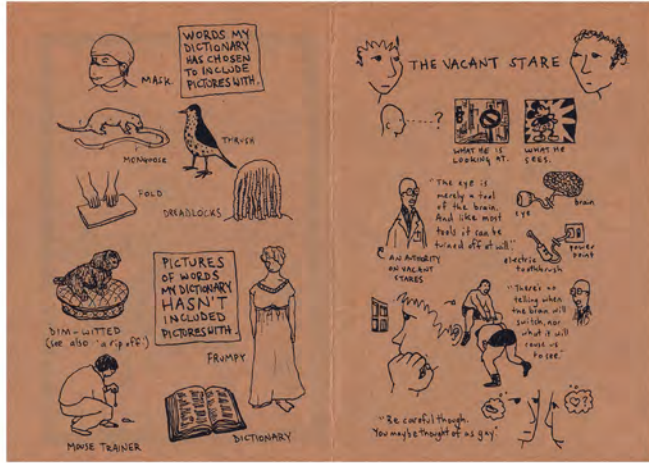 WORDS MY
DICTIONARY
HAS CHOSEN
TO INCLUDE
PICTURES WITH.
MASK.
MONGOOSE
THRUSH
FOLD
DREADLOCKS
PICTURES
OF WORDS
MY DICTIONARY
HASN'T
INCLUDED
PICTURES WITH.
DIM-WITTED
(see also 'a rip off')
FRUMPY
MOUSE TRAINER
DICTIONARY
THE VACANT STARE
?
WHAT HE IS
LOOKING AT.
WHAT HE
SEES.
"The eye is
merely a tool
of the brain.
And like most
tools it can be
turned off at will".
AN AUTHORITY
ON VACANT
STARES
eye
brain
electric
toothbrush
power
point
"There's no
telling when
the brain will
switch, nor
what it will
cause us
to see."
"Be careful though.
You may be thought of as gay."
?